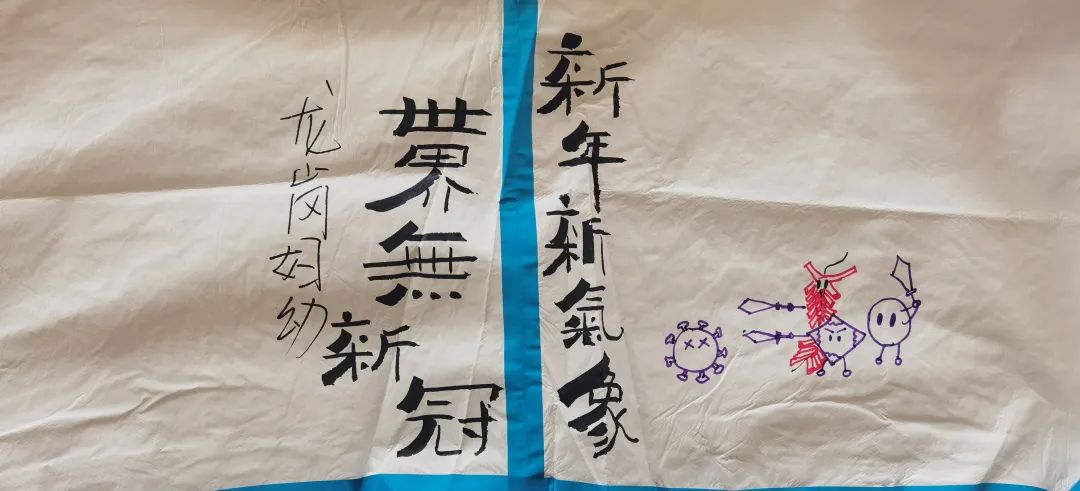 新年新氣象
世界無新冠
龙岗妇幼